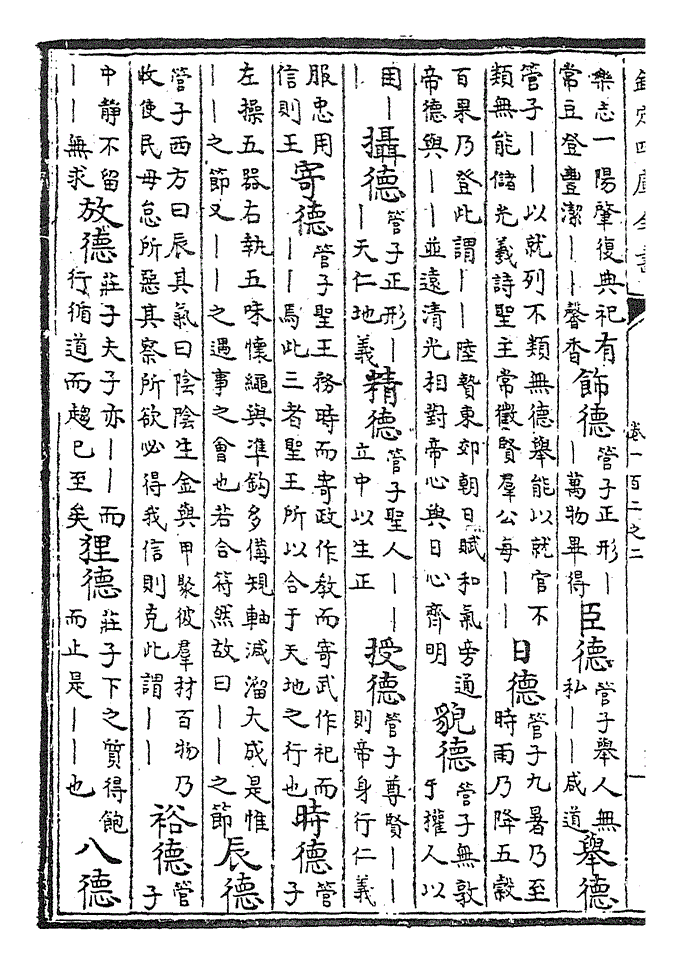 欽定四庫全書 卷一百二之二
樂志一陽肇復典祀有
常豆登豐潔丨丨馨香
飾德
管子正形丨
丨萬物畢得
臣德
管子舉人無
私丨丨咸道
舉德
管子丨丨以就列不類無德舉能以就官不
類無能儲光羲詩聖主常徵賢羣公每丨丨
日德
管子九暑乃至
時雨乃降五穀
百果乃登此謂丨丨陸贄東郊朝日賦和氣旁通
帝德與丨丨並遠清光相對帝心與日心齊明
貌德
管子無敦
于權人以
困丨
丨
攝德
管子正形丨
丨天仁地義
精德
管子聖人丨丨
立中以生正
授德
管子尊賢丨丨
則帝身行仁義
服忠用
信則王
寄德
管子聖王務時而寄政作教而寄武作祀而
丨丨焉此三者聖王所以合于天地之行也
時德
管
子
左操五器右執五味懷繩與準鉤多備規軸減溜大成是惟
丨丨之節又丨丨之遇事之會也若合符然故曰丨丨之節
辰德
管子西方曰辰其氣曰陰陰生金與甲聚彼羣材百物乃
收使民毋怠所惡其察所欲必得我信則克此謂丨丨
裕德
管
子
中静不留
丨丨無求
放德
莊子夫子亦丨丨而
行循道而趨已至矣
狸德
莊子下之質得飽
而止是丨丨也
八德